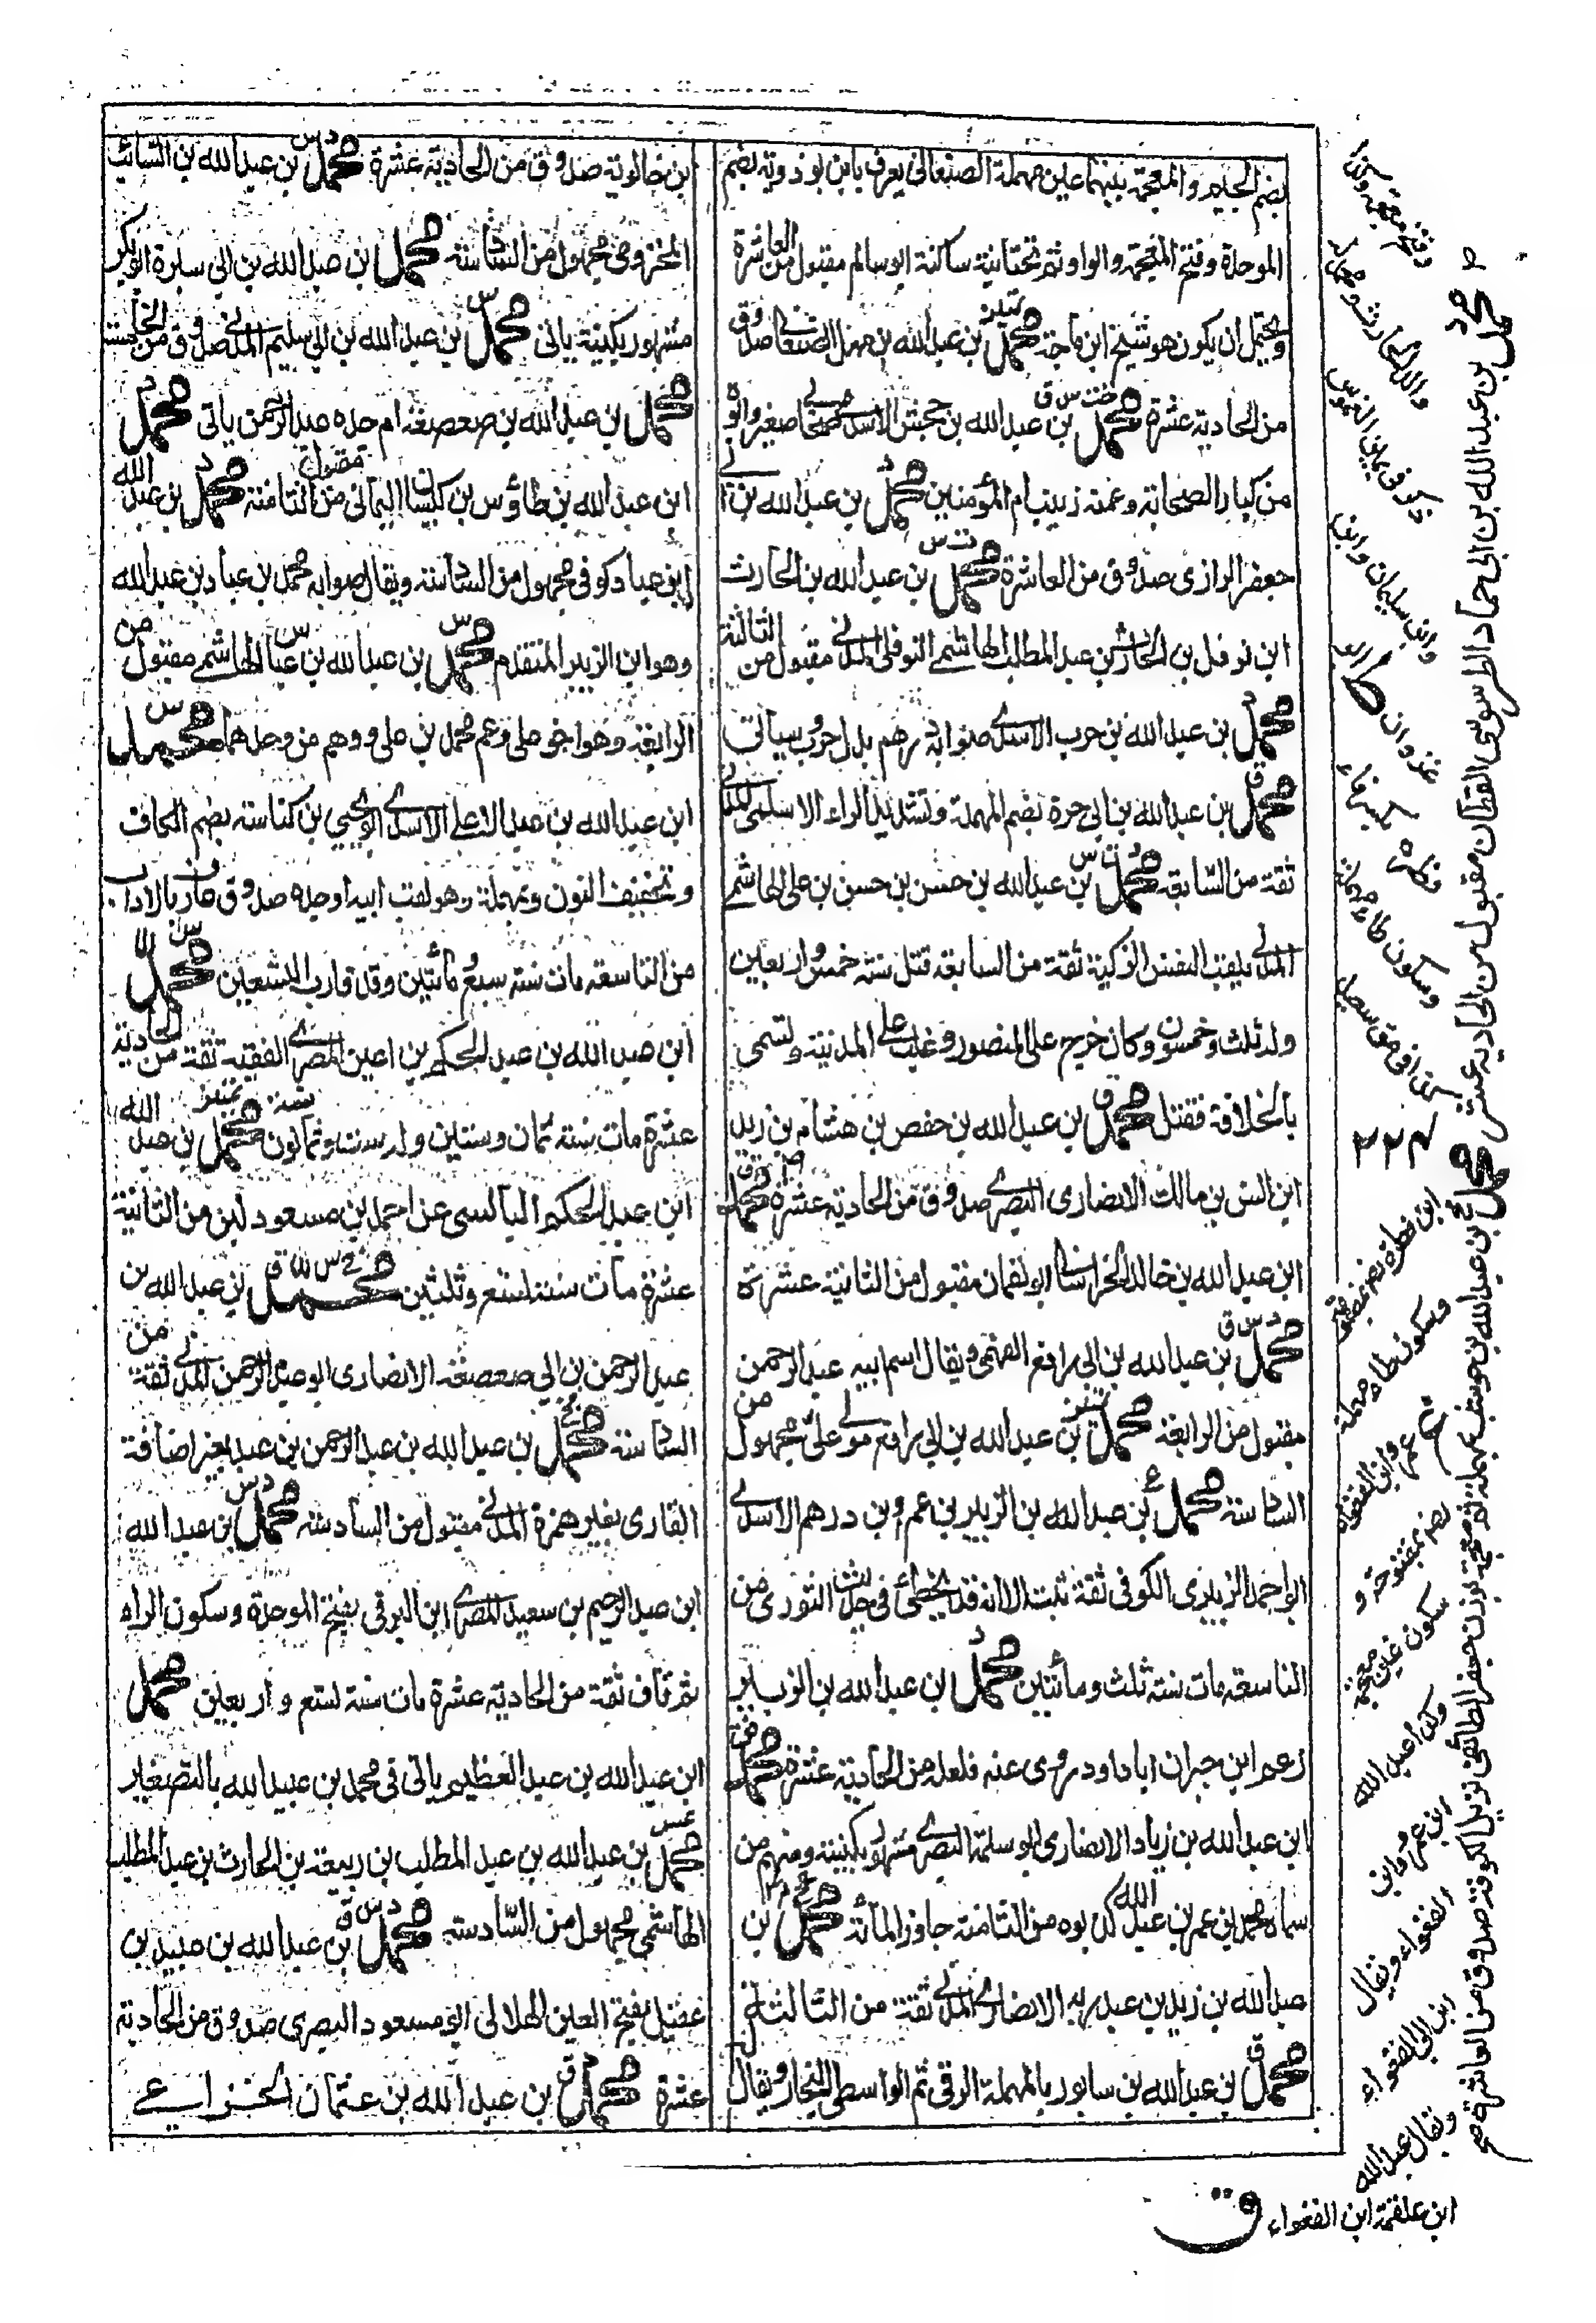 بضم الجيم والمعجمة بينهما عين مهملة الصنعاني يعرف بابن بوذوية بضم
الموحدة وفتح المعجمة والواو ثم تحتانية ساكنة ابو سالم مقبول من العاشرة
ويحتمل ان يكون هو شيخ ابن ماجة محمد بن عبد الله بن مهل الصنعاني صدوق
من الحادية عشرة محمد بن عبد الله بن جحش الاسدي صحابي صغير وابوه
من كبار الصحابة وعمته زينب ام المؤمنين محمد بن عبد الله بن ابي
جعفر الرازى صدوق من العاشرة محمد بن عبد الله بن الحارث
ابن نوفل بن الحارث بن عبد المطلب الهاشمي النوفلي المدني مقبول من الثالثة
محمد بن عبد الله بن حرب الاسدي صوابه درهم بدل حرب وسياتي
محمد بن عبد الله بن ابى حرة بضم المهملة وتشديد الراء الاسلمي المدني
ثقة من السابعة محمد بن عبد الله بن حسن بن حسن بن على الهاشمي
المدني يلقب النفس الزكية ثقة من السابعة قتل سنة خمس واربعين
وله ثلث وخمسون وكان خرج على المنصور وغلب على المدينة وتسمى
بالخلافة فقتل محمد بن عبد الله بن حفص بن هشام بن زيد
ابن انس بن مالك الانصارى البصري صدوق من الحادية عشرة محمد
ابن عبد الله بن خالد الخراساني ابو لقمان مقبول من الثانية عشرة
محمد بن عبد الله بن ابى رافع الفهمي ويقال اسم ابيه عبد الرحمن
مقبول من الرابعة محمد بن عبد الله بن ابي رافع مولى علي مجهول من
السادسة محمد بن عبد الله بن الزبير بن عمرو بن درهم الاسدي
ابو احمد الزبيرى الكوفى ثقة ثبت الا انه قد يخطئ فى حديث الثورى من
التاسعة مات سنة ثلث ومائتين محمد بن عبد الله بن الزبير
زعم ابن حبان ان ابا داود روى عنه فلعله من الحادية عشرة محمد
ابن عبد الله بن زياد الانصارى ابو سلمة البصري مشهور بكنيته ومنهم من
سماه محمد بن عمر بن عبد الله كذبوه من الثامنة جاوز المائة محمد بن
عبد الله بن زيد بن عبد ربه الانصاري المدني ثقة من الثالثة
محمد بن عبد الله بن سابور بالمهملة الرقي ثم الواسطي النجار ويقال
ابن خالوية صدوق من الحادية عشرة محمد بن عبد الله بن السائب
المخزومى مجهول من السادسة محمد بن عبد الله بن ابي سبرة ابو بكر
مشهور بكنيته ياتى محمد بن عبد الله بن ابي سليم المدني صدوق من الخامسة
محمد بن عبد الله بن صعصعة ام جده عبد الرحمن ياتى محمد
ابن عبد الله بن طاؤس بن كيسان اليمانى مقبول من الثامنة محمد بن عبد الله
ابن عباد كوفى مجهول من السادسة ويقال صوابه محمد بن عباد بن عبد الله
وهو ابن الزبير المتقدم محمد بن عبد الله بن عباس الهاشمي مقبول من
الرابعة وهو اخو على وعم محمد بن على ووهم من وحدهما محمد
ابن عبد الله بن عبد الاعلى الاسدي ابو يحيى بن كناسة بضم الكاف
وتخفيف النون وبمهملة وهو لقب ابيه او جده صدوق عارف بالاداب
من التاسعة مات سنة سبع ومائتين وقد قارب التسعين محمد
ابن عبد الله بن عبد الحكم بن اعين المصري الفقيه ثقة من الحادية
عشرة مات سنة ثمان وستين وله ست وثمانون سنة محمد بن عبد الله
ابن عبد الحكم اليالسى عن احمد بن مسعود لين من الثانية
عشرة مات سنة تسع وثلثين محمد بن عبد الله بن
عبد الرحمن بن ابي صعصعة الانصارى ابو عبد الرحمن المدني ثقة من
السادسة محمد بن عبد الله بن عبد الرحمن بن عبد بغير اضافة
القارى بغير همزة المدني مقبول من السادسة محمد بن عبد الله
ابن عبد الرحيم بن سعيد المصري ابن البرقى بفتح الموحدة وسكون الراء
ثم قاف ثقة من الحادية عشرة مات سنة تسع واربعين محمد
ابن عبد الله بن عبد العظيم ياتى فى محمد بن عبيد الله بالتصغير
محمد بن عبد الله بن عبد المطلب بن ربيعة بن الحارث بن عبد المطلب
الهاشمي مجهول من السادسة محمد بن عبد الله بن عبيد بن
عقيل بفتح العين الهلالى ابو مسعود البصرى صدوق من الحادية
عشرة محمد بن عبد الله بن عثمان الخزاعي
محمد بن عبد الله بن ابى حماد الطرسوسى القطان مقبول من الحادية عشر محمد بن عبد الله بن حوشب بمهملة ثم معجمة بوزن جعفر الطائفي نزيل الكوفة صدوق من العاشرة صح
وابن سليمان وابن
غزوان
وسكون طاء مهملة
٢٢٤
وسكون طاء مهملة
عمرو ابن الفغواء
سكون غين معجمة
وكذا عبد الله
ابن عمرو ابن
الفغواء ويقال
ابن ابى الفغواء
ويقال عبد الله
ابن علقمة ابن الفغواء
ق